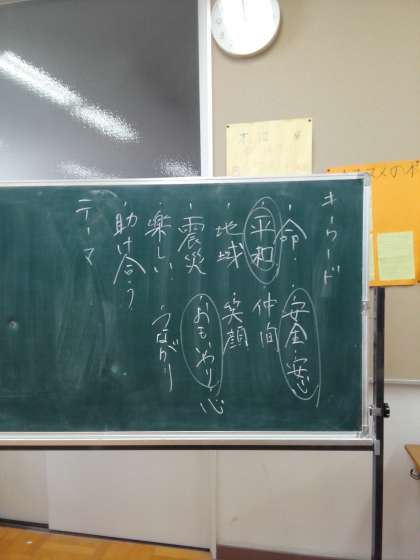 キーワード
・命・
・平和
・地域
・震災
・楽しい
・助け合う
テーマ
・安全・安心
・仲間
・笑顔
・おもいやり 心
・つながり